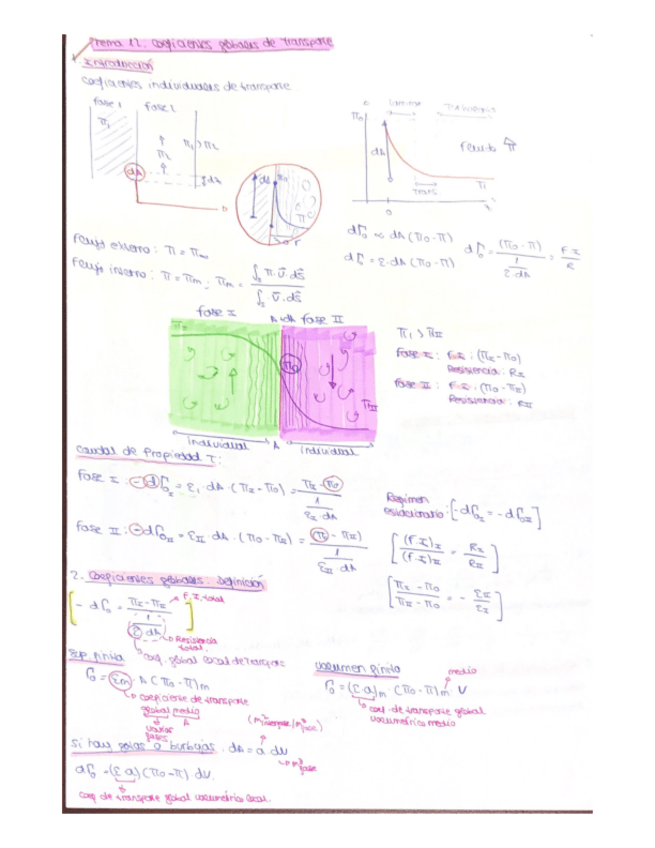 Tema 12. Coeficientes globales de transporte
1. Introducción
Coeficientes individuales de transporte
fase 1 fase 2
Π₁
Π₂
Π₁ > Π₂
dA
dz
Π₀
Π
Π₀
dA
laminar
Trans
fluido Π
0
Flujo externo: Π = Π∞
Flujo interno: Π = Πm ; Πm = ∫ₛ Π·v̄·ds̄ / ∫ₛ v̄·ds̄
dΓ₀ ∝ dA (Π₀ - Π)
dΓ₀ = Σ·dA (Π₀ - Π)
dΓ₀ = (Π₀ - Π) / (1 / Σ·dA) = F.I / R
fase I A+dA fase II
Π₀
ΠII
individual A individual
ΠI > ΠII
Fase I: F.I: (ΠI - Π₀)
Resistencia: RI
Fase II: F.I: (Π₀ - ΠII)
Resistencia: RII
Caudal de Propiedad T:
Fase I: -dΓ₀I = ΣI·dA·(ΠI - Π₀) = (ΠI - Π₀) / (1 / ΣI·dA)
Fase II: -dΓ₀II = ΣII·dA·(Π₀ - ΠII) = (Π₀ - ΠII) / (1 / ΣII·dA)
Regimen
estacionario: [-dΓ₀I = -dΓ₀II]
[(F.I)I / (F.I)II = RI / RII]
[(ΠI - Π₀) / (ΠII - Π₀) = - ΣII / ΣI]
2. Coeficientes globales: Definición
[-dΓ₀ = (ΠI - ΠII) / (1 / Σ dA)]
F.I. total
Resistencia
total
coef. global local de Transporte
Sup. finita
Γ₀ = Σm·A (Π₀ - Π)m
coeficiente de transporte
global medio
varias A
fases
Volumen finito
medio
Γ₀ = (Σ·a)m (Π₀ - Π)m V
coef. de transporte global
volumétrico medio
(m² interfase/m³ fase)
Si hay gotas o burbujas: dA = a dV
m³ fase
dΓ₀ = (Σ·a) (Π₀ - Π)·dV.
coef de transporte global volumétrico local.